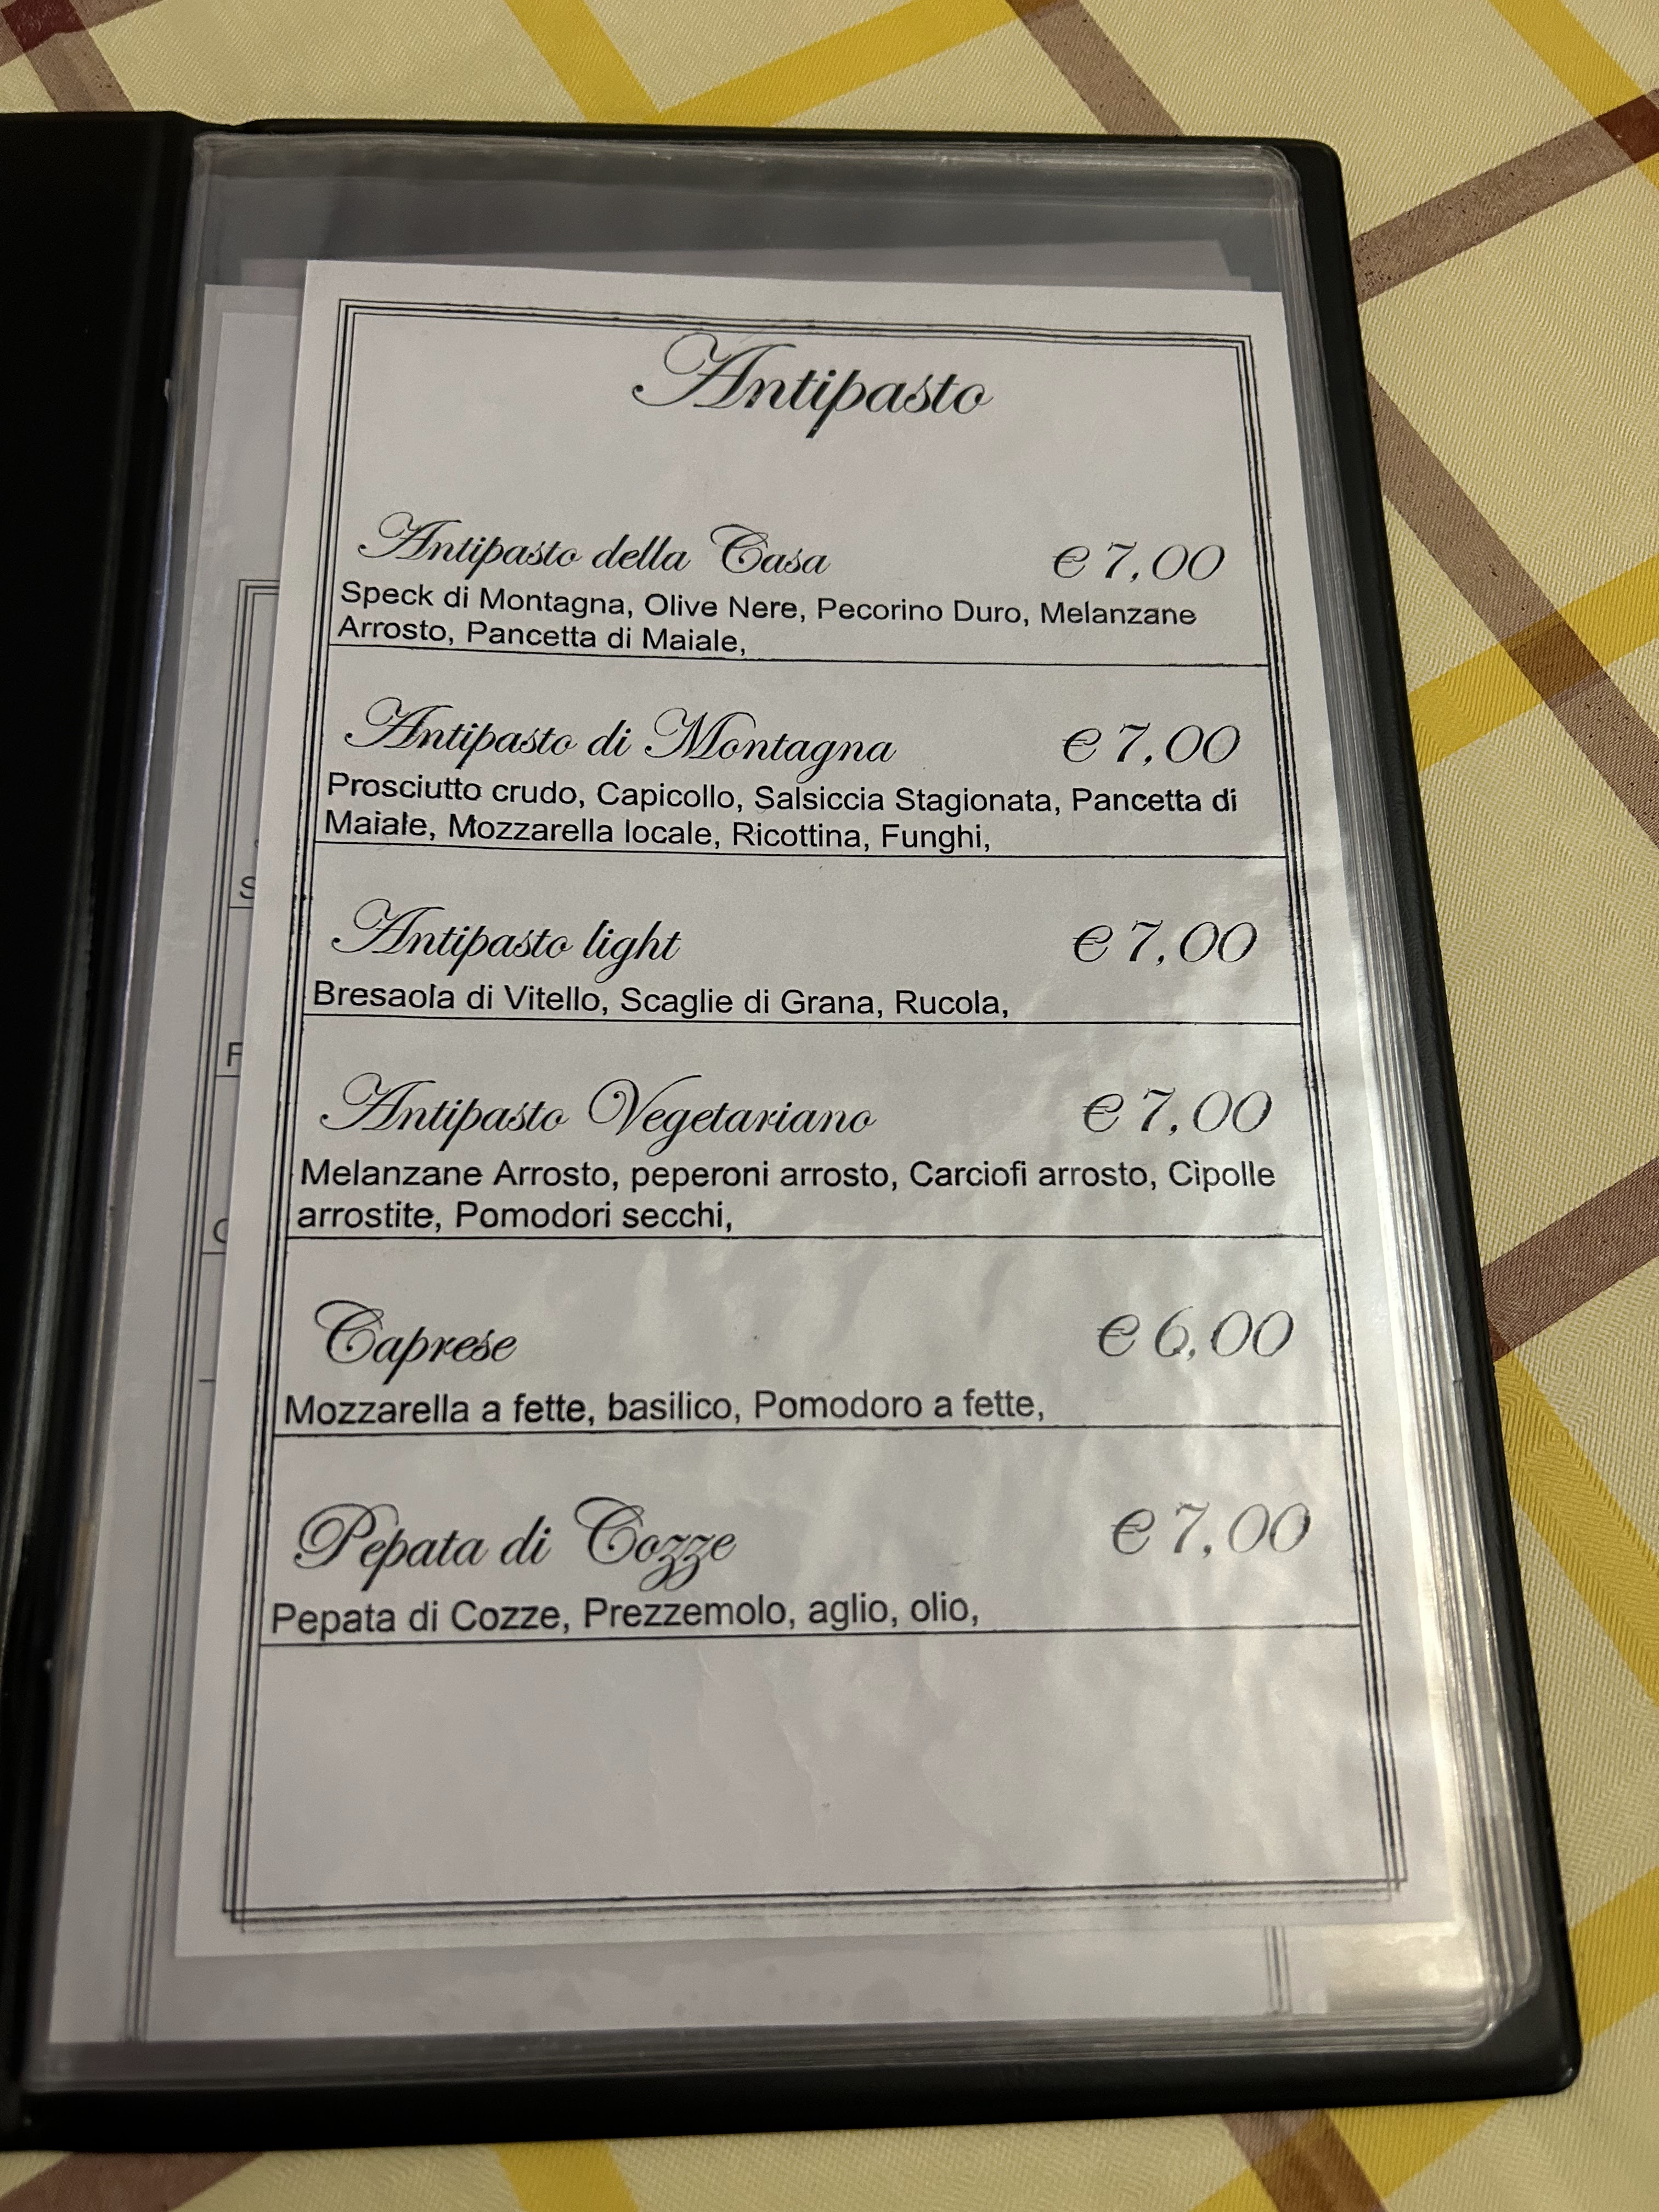 Antipasto
Antipasto della Casa € 7,00
Speck di Montagna, Olive Nere, Pecorino Duro, Melanzane
Arrosto, Pancetta di Maiale,
Antipasto di Montagna € 7,00
Prosciutto crudo, Capicollo, Salsiccia Stagionata, Pancetta di
Maiale, Mozzarella locale, Ricottina, Funghi,
Antipasto light € 7,00
Bresaola di Vitello, Scaglie di Grana, Rucola,
Antipasto Vegetariano € 7,00
Melanzane Arrosto, peperoni arrosto, Carciofi arrosto, Cipolle
arrostite, Pomodori secchi,
Caprese € 6,00
Mozzarella a fette, basilico, Pomodoro a fette,
Pepata di Cozze € 7,00
Pepata di Cozze, Prezzemolo, aglio, olio,